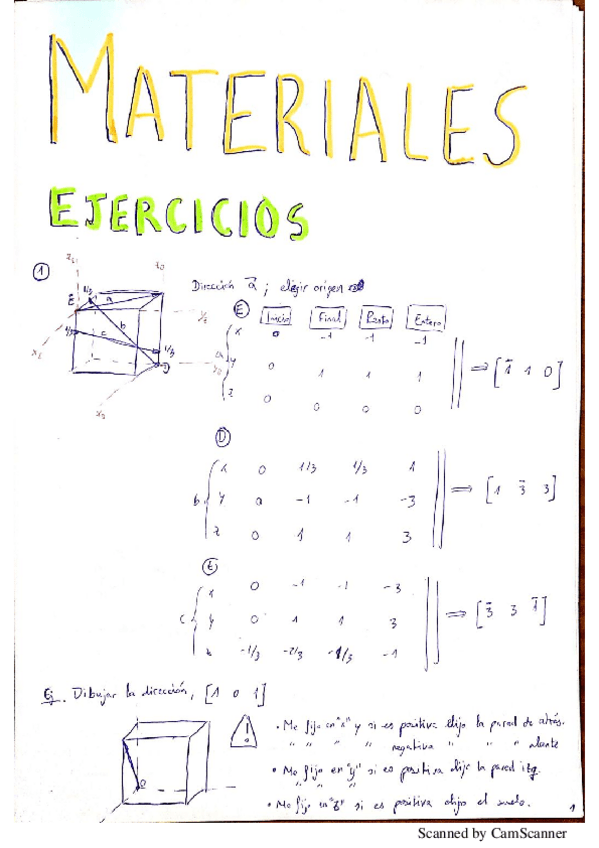 MATERIALES
EJERCICIOS
① Dirección a⃗ ; elegir origen
E Inicio Final Resta Entero
x 0 -1 -1 -1
a y 0 1 1 1 ⟹ [1̄ 1 0]
z 0 0 0 0
D
x 0 1/3 1/3 1
b y 0 -1 -1 -3 ⟹ [1 3̄ 3]
z 0 1 1 3
E
x 0 -1 -1 -3
c y 0 1 1 3 ⟹ [3̄ 3 1̄]
z -1/3 -2/3 -1/3 -1
Ej. Dibujar la dirección, [1 0 1]
• Me fijo en "x" y si es positiva elijo la pared de atrás.
" " " " negativa " " " alante
• Me fijo en "y" si es positiva elijo la pared izq.
" " "
• Me fijo en "z" si es positiva elijo el suelo.
1
Scanned by CamScanner